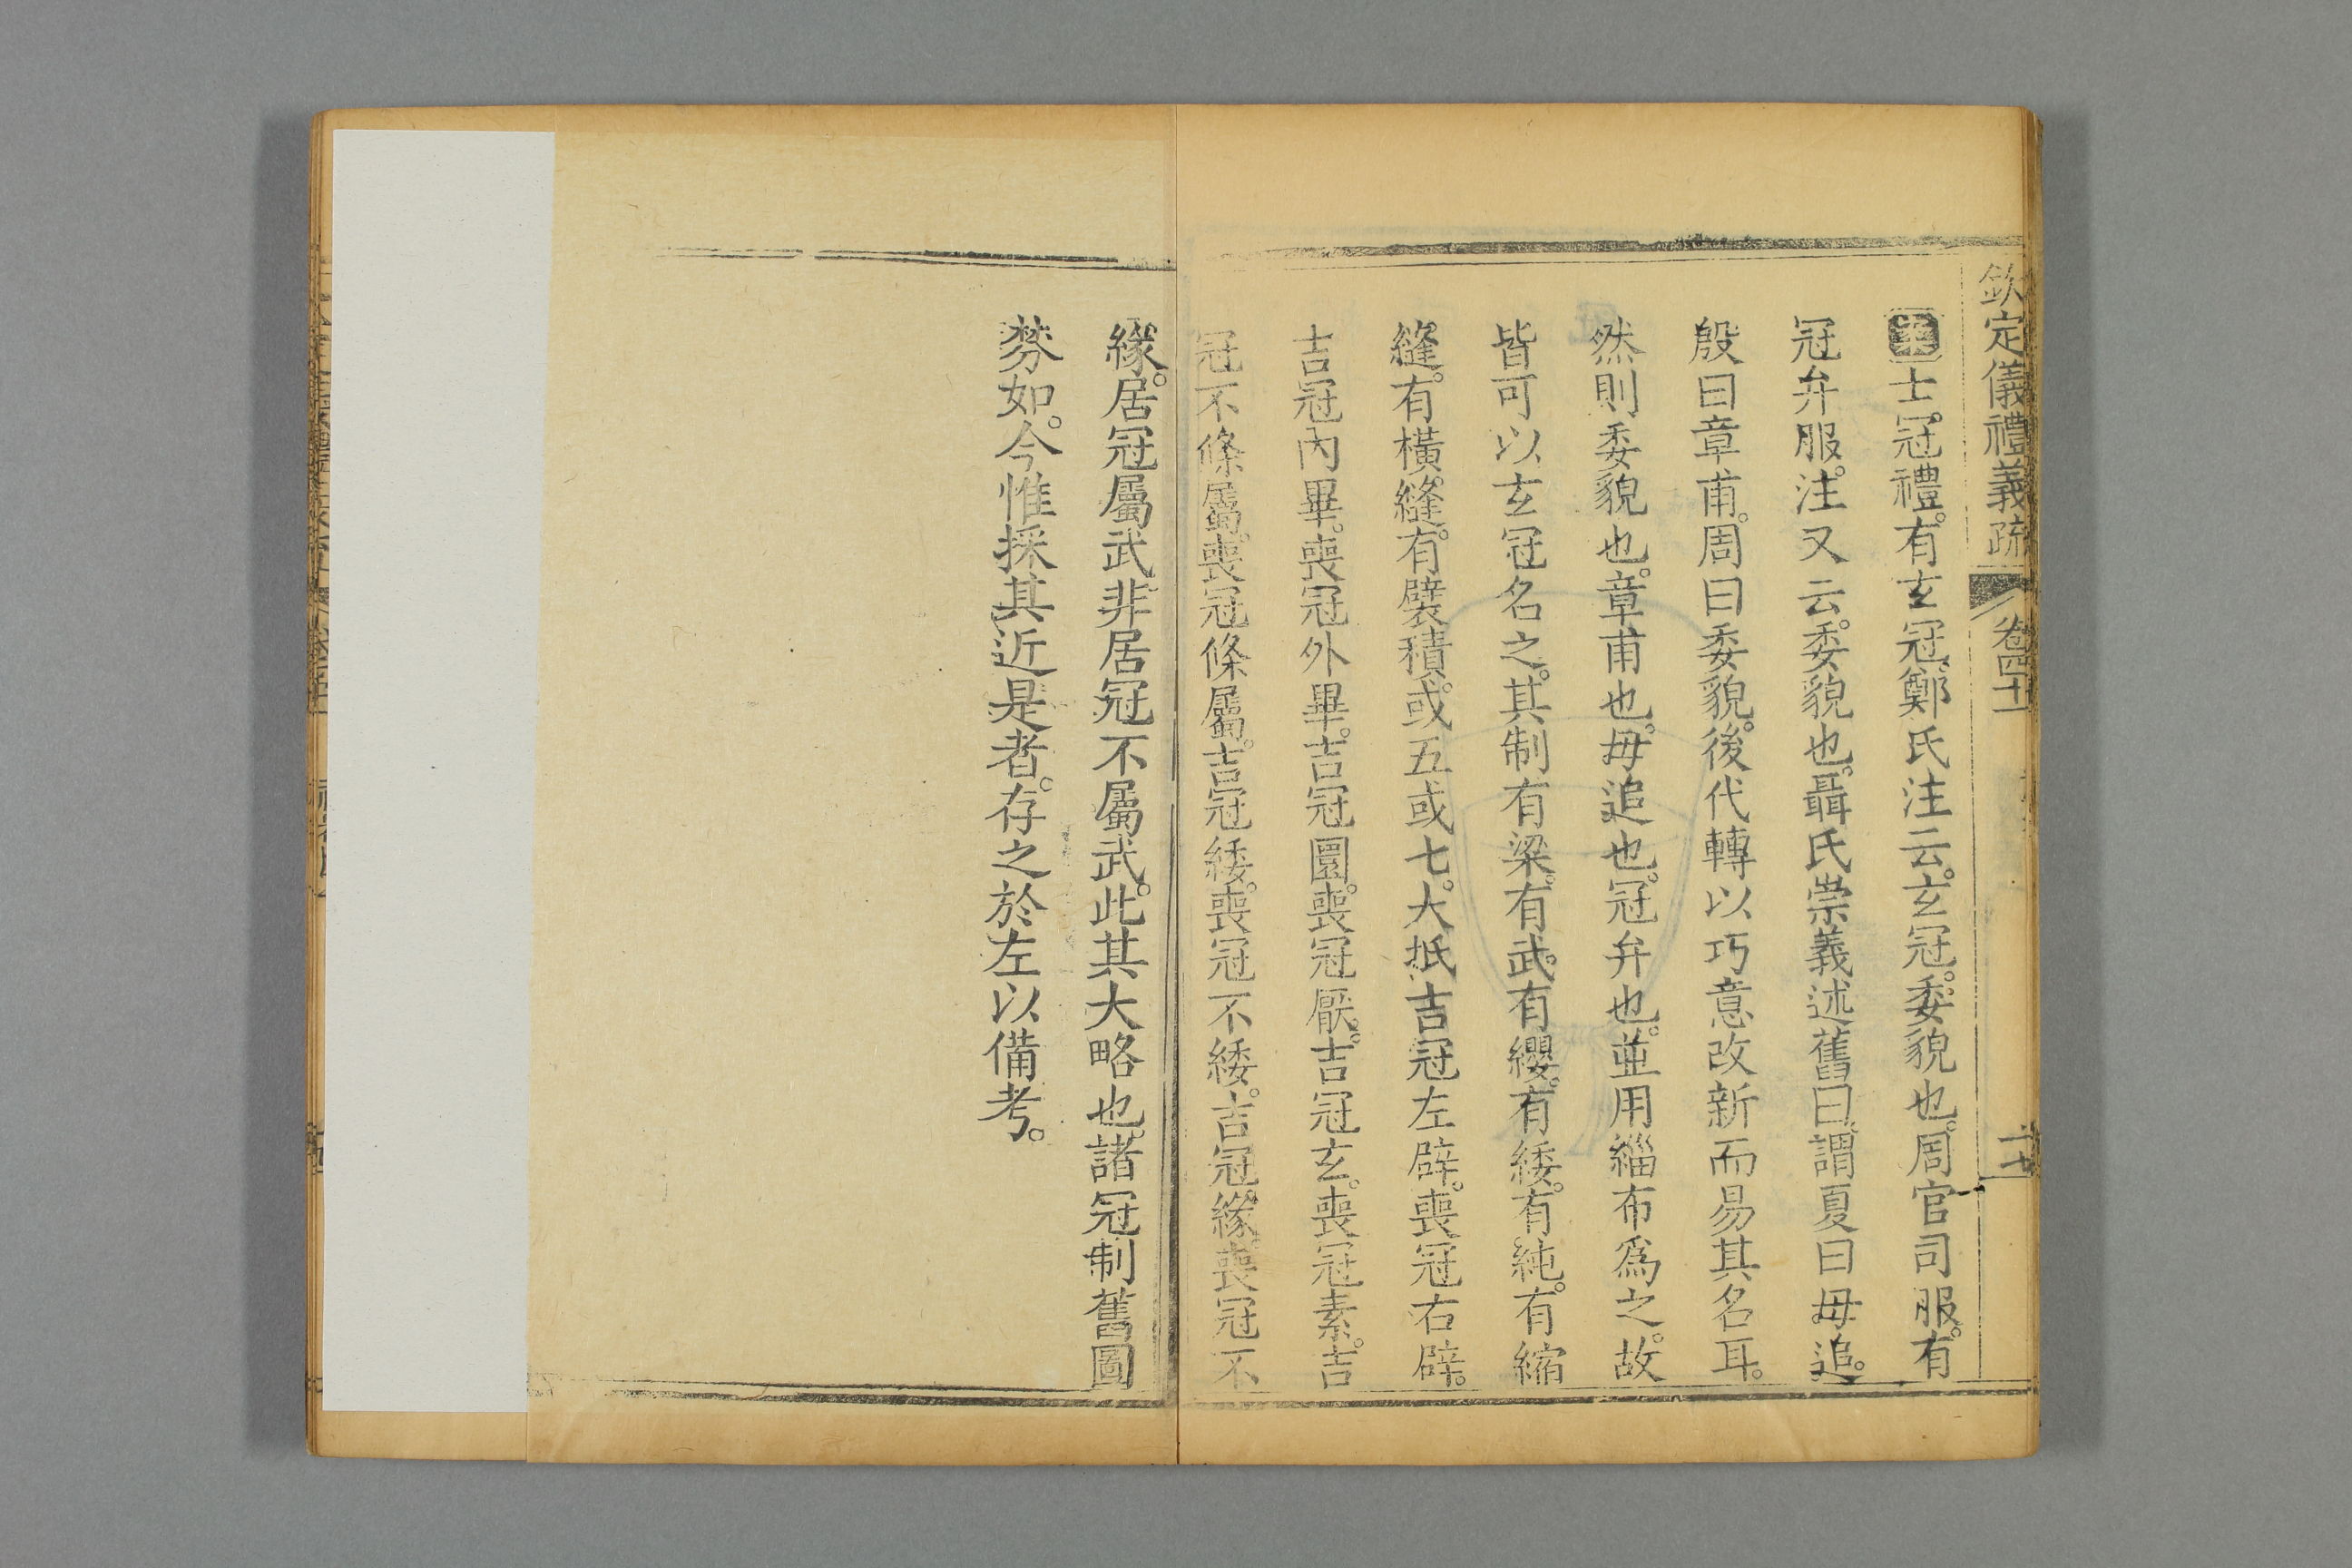 欽定儀禮義疏 卷四十
士冠禮。有玄冠。鄭氏注云。玄冠。委貌也。周官司服。有
冠弁服。注又云。委貌也。聶氏崇義述舊曰。謂夏曰毋追。
殷曰章甫。周曰委貌。後代轉以巧意改新而易其名耳。
然則委貌也。章甫也。毋追也。冠弁也。並用緇布爲之。故
皆可以玄冠名之。其制有梁。有武。有纓。有緌。有純。有縮
縫。有橫縫。有襞積。或五或七。大抵吉冠左辟。喪冠右辟。
吉冠內畢。喪冠外畢。吉冠圜。喪冠厭。吉冠玄。喪冠素。吉
冠不條屬。喪冠條屬。吉冠緌。喪冠不緌。吉冠緣。喪冠不
緣。居冠屬武。非居冠不屬武。此其大略也。諸冠制舊圖
棼如。今惟採其近是者。存之於左以備考。